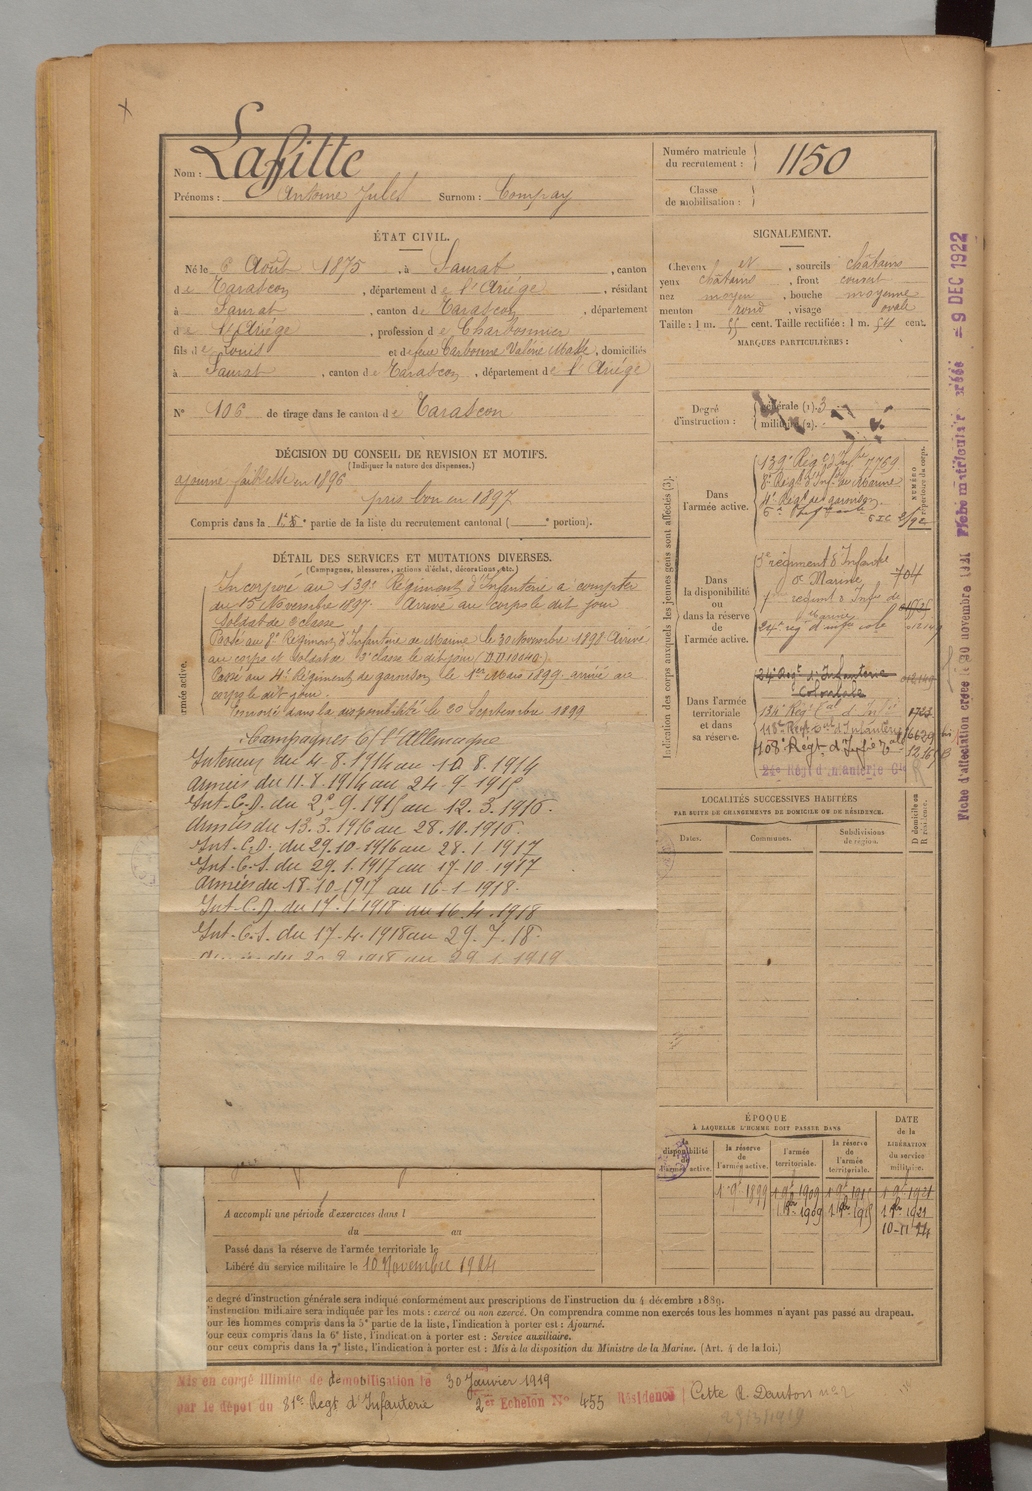 Lafitte
Nom :
Prénoms : Antoine Jules Surnom : Compay
Numéro matricule
du recrutement : 1150
Classe
de mobilisation :
ÉTAT CIVIL.
Né le 6 Août 1875, à Saurat, canton
de Tarascon, département de l'Ariège, résidant
à Saurat, canton de Tarascon, département
de l'Ariège, profession de Charbonnier
fils de Louis et de feue Carbonne Valérie, domiciliés
à Saurat, canton de Tarascon, département de l'Ariège
N° 106 de tirage dans le canton de Tarascon
SIGNALEMENT.
Cheveux et, sourcils châtains
yeux châtains, front couvert
nez moyen, bouche moyenne
menton rond, visage ovale
Taille : 1 m. 55 cent. Taille rectifiée : 1 m. 54 cent.
MARQUES PARTICULIÈRES :
Degré
d'instruction :
générale (1). 3
militaire (2).
DÉCISION DU CONSEIL DE REVISION ET MOTIFS.
(Indiquer la nature des dispenses.)
ajourné faiblesse en 1896
pris bon en 1897
Compris dans la partie de la liste du recrutement cantonal ( portion).
DÉTAIL DES SERVICES ET MUTATIONS DIVERSES.
(Campagnes, blessures, actions d'éclat, décorations, etc.)
Incorporé au 139e Régiment d'Infanterie à compter
du 15 Novembre 1897. Arrivé au corps le dit jour
Soldat de 2 classe
Passé au 8e Régiment d'Infanterie de Marine le 30 Novembre 1898 Arrivé
au corps et soldat de 2e classe le dit jour (D.D 10040)
Passé au 4e Régiment de garnison le 1er Mars 1899 arrivé au
corps le dit jour.
Envoyé dans la disponibilité le 20 Septembre 1899
armée active.
Campagnes C/ l'Allemagne
Intérieur du 4-8-1914 au 10.8.1914
Armées du 11.8.1914 au 24-9-1915
Int. C.D. du 25.9.1915 au 12.3.1916.
Armées du 13.3.1916 au 28.10.1916.
Int. C.D. du 29.10-1916 au 28.1 1917
Int. C.S. du 29.1.1917 au 17-10-1917
Armées du 18-10-1917 au 16-1-1918.
Int. C.D. du 17.1-1918 au 16.4.1918
Int. C.S. du 17-4.1918 au 29.7.18.
Indication des corps auxquels les jeunes gens sont affectés (3).
NUMÉRO
au répertoire du corps.
Dans
l'armée active.
139e Rég. d'Inf. 7769
8e Régt d'Inf. de Marine
4e Régt de garnison
Dans
la disponibilité
ou
dans la réserve de
l'armée active.
3e régiment d'Infanterie
de Marine 704
24e rég. d'inf. col.
Dans l'armée
territoriale
et dans
sa réserve.
24e Régt d'Infanterie
Coloniale
134e Régt al d'Infie
118e Régt al d'Infanterie
108e Régt d'Infie
24e Rég d'Infanterie Cle
LOCALITÉS SUCCESSIVES HABITÉES
PAR SUITE DE CHANGEMENTS DE DOMICILE OU DE RÉSIDENCE.
Dates.
Communes.
Subdivisions
de région.
D domicile ou
R résidence.
ÉPOQUE
À LAQUELLE L'HOMME DOIT PASSER DANS
la
disponibilité
de
l'armée active.
la réserve
de
l'armée active.
l'armée
territoriale.
la réserve
de
l'armée
territoriale.
DATE
de la
LIBÉRATION
du service
militaire.
1 9e 1899 1 9e 1909 1 9e 1915 1 9e 1921
10-11 24
A accompli une période d'exercices dans l
du au
Passé dans la réserve de l'armée territoriale le
Libéré du service militaire le 10 Novembre 1924
Le degré d'instruction générale sera indiqué conformément aux prescriptions de l'instruction du 4 décembre 1889.
L'instruction militaire sera indiquée par les mots : exercé ou non exercé. On comprendra comme non exercés tous les hommes n'ayant pas passé au drapeau.
Pour les hommes compris dans la 5e partie de la liste, l'indication à porter est : Ajourné.
Pour ceux compris dans la 6e liste, l'indication à porter est : Service auxiliaire.
Pour ceux compris dans la 7e liste, l'indication à porter est : Mis à la disposition du Ministre de la Marine. (Art. 4 de la loi.)
Mis en congé illimité de démobilisation le 30 Janvier 1919
par le dépôt du 81e Régt d'Infanterie 2er Echelon N° 455 Résidence Cette R. Danton n° 2
29/3/1919
Fiche d'affectation créée le 30 novembre 1921 Fiche matriculaire créée = 9 DEC 1922